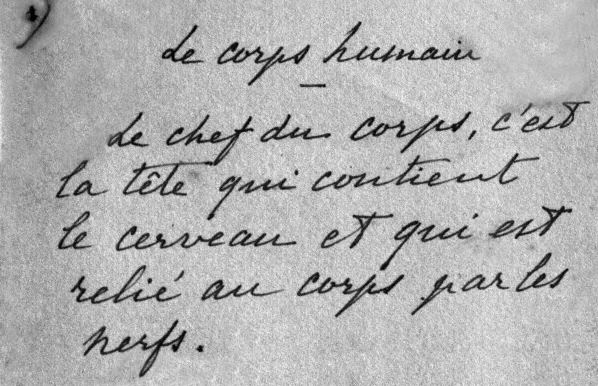 Le corps humain
Le chef du corps, c'est
la tête qui contient
le cerveau et qui est
relié au corps par les
nerfs.